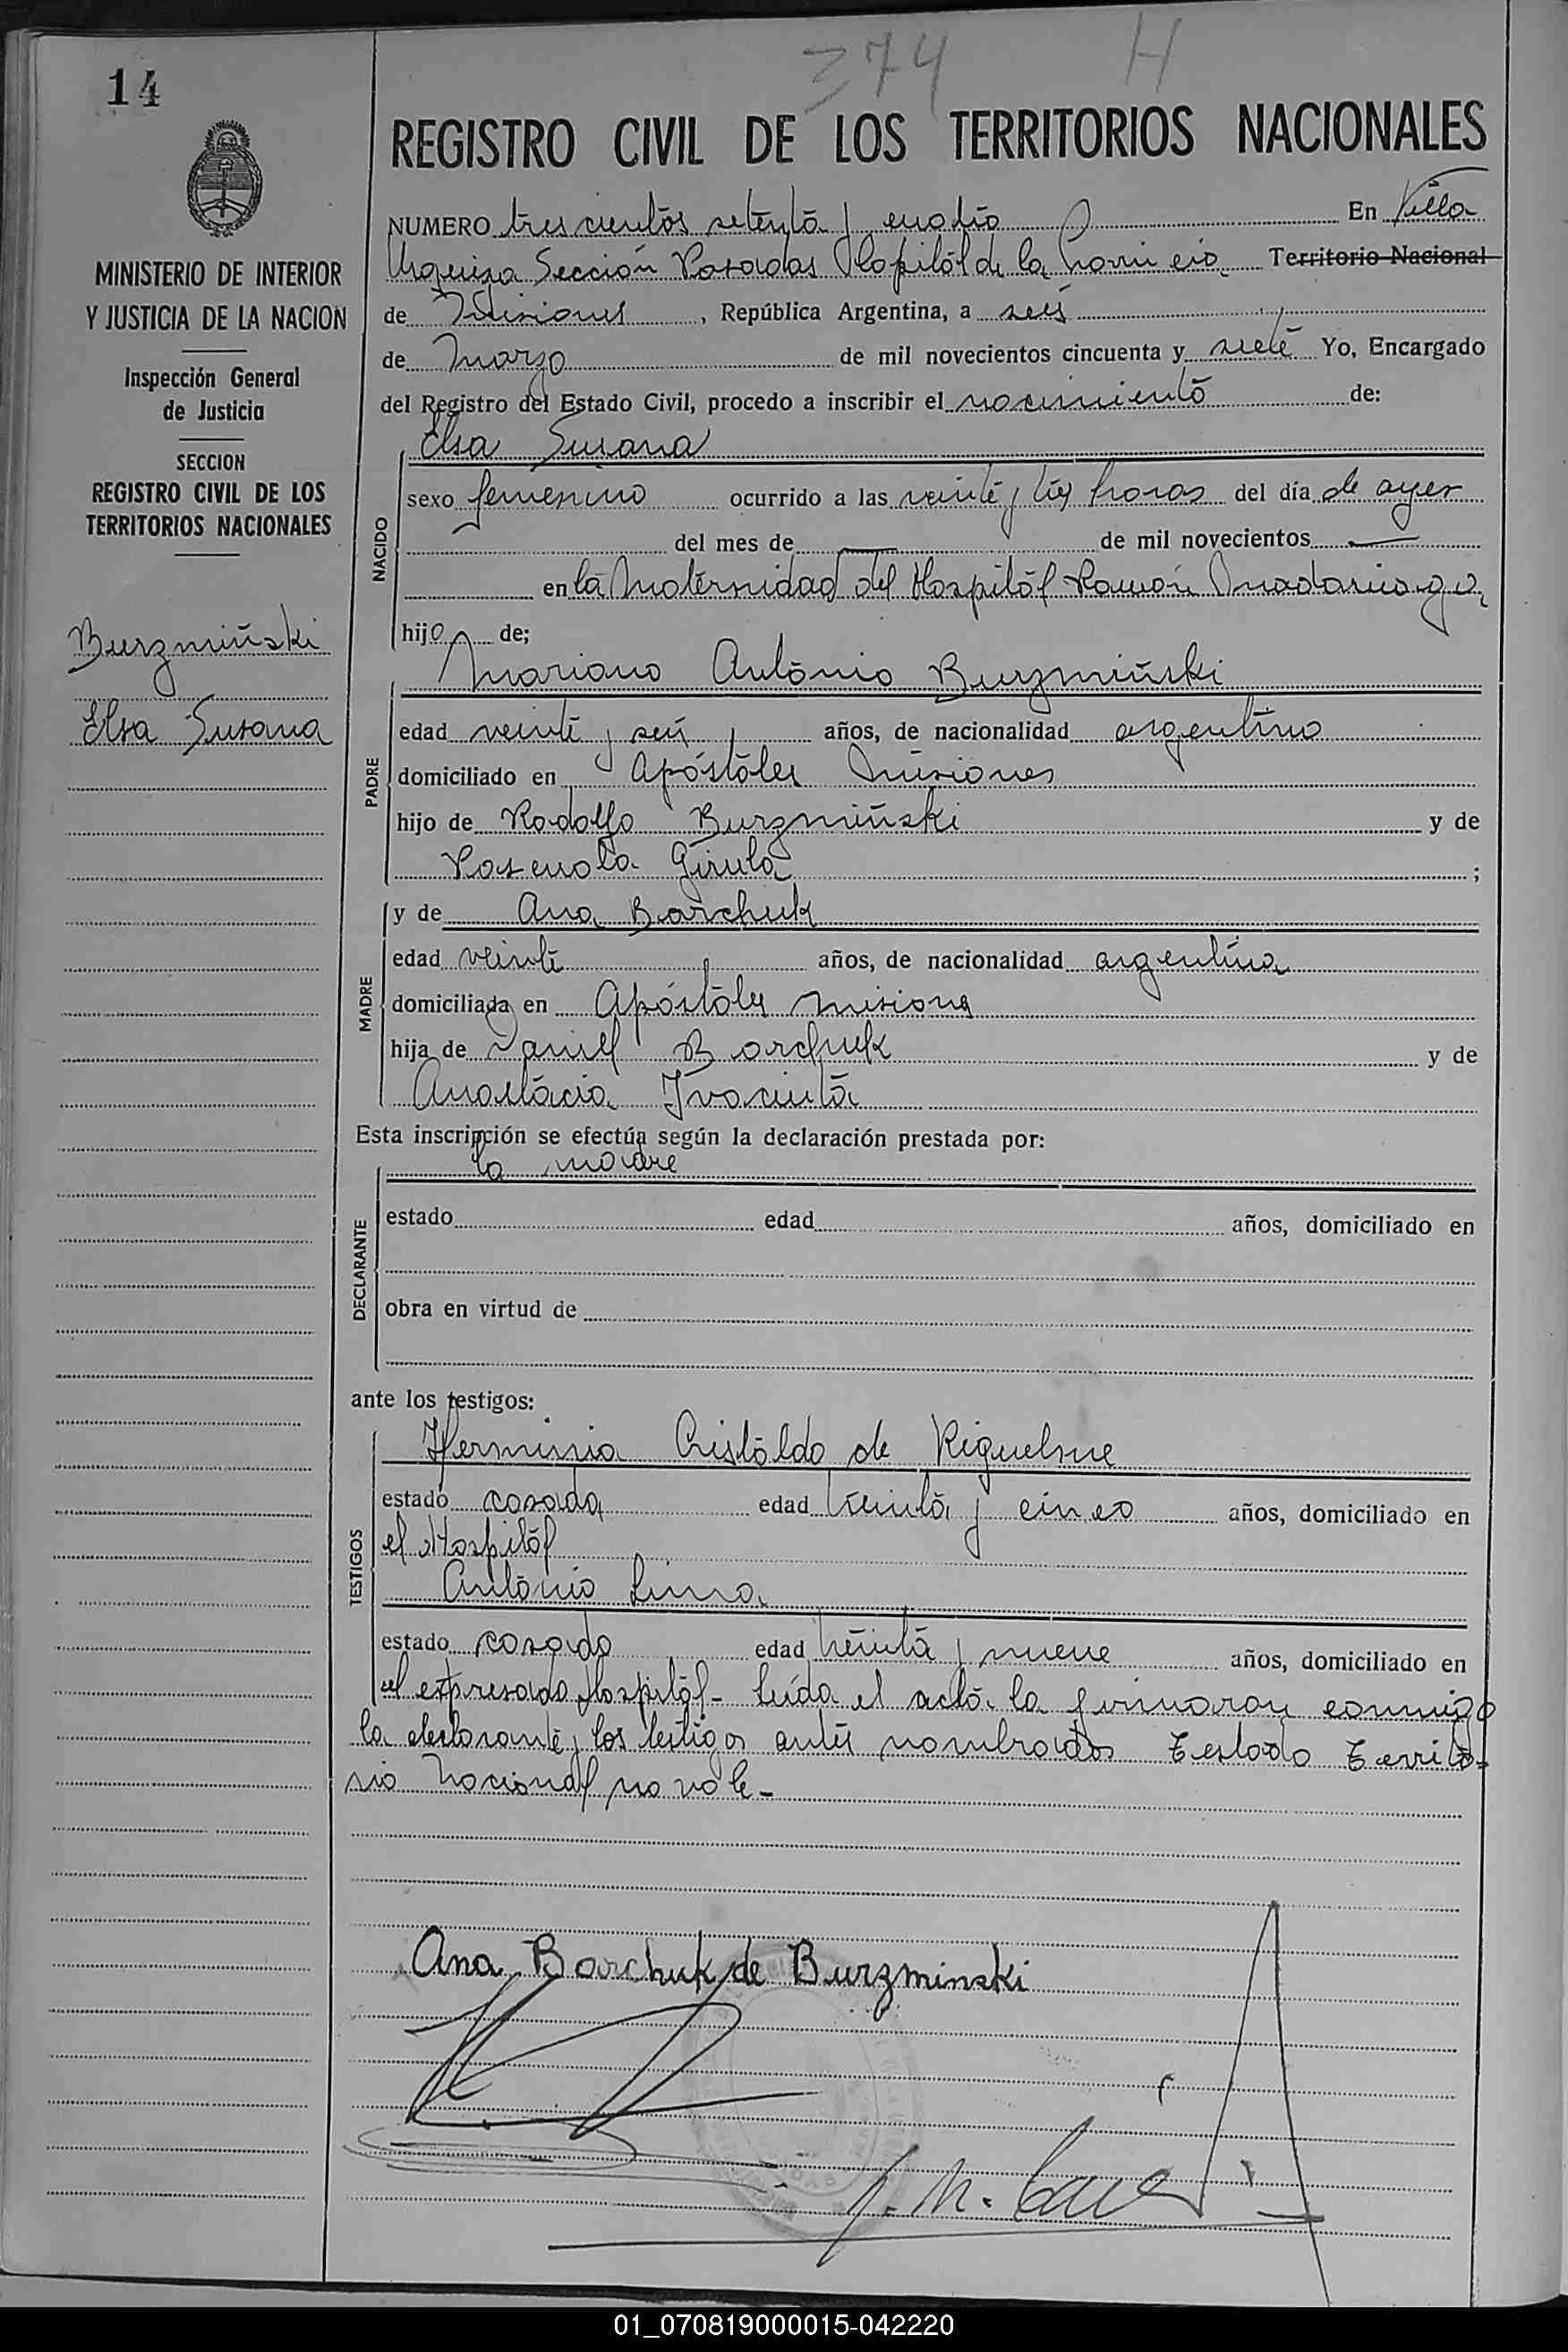 374 H
14
REGISTRO CIVIL DE LOS TERRITORIOS NACIONALES
NUMERO trescientos setenta y cuatro En Villa
Urquiza Sección Posadas Hospital de la Provincia Territorio Nacional
de Misiones, República Argentina, a seis
de Marzo de mil novecientos cincuenta y siete Yo, Encargado
del Registro del Estado Civil, procedo a inscribir el nacimiento de:
Elsa Susana
MINISTERIO DE INTERIOR
Y JUSTICIA DE LA NACION
Inspección General
de Justicia
SECCION
REGISTRO CIVIL DE LOS
TERRITORIOS NACIONALES
Burzmiński
Elsa Susana
NACIDO
sexo femenino ocurrido a las veinte y tres horas del día de ayer
del mes de — de mil novecientos —
en la Maternidad del Hospital Ramón Madariaga
hija de;
Mariano Antonio Burzmiński
PADRE
edad veinte y seis años, de nacionalidad argentino
domiciliado en Apóstoles Misiones
hijo de Rodolfo Burzmiński y de
Girula ;
y de Ana Barchuk
MADRE
edad veinte años, de nacionalidad argentina
domiciliada en Apóstoles Misiones
hija de Daniel Barchuk y de
Anastacia
Esta inscripción se efectúa según la declaración prestada por:
la madre
DECLARANTE
estado edad años, domiciliado en
obra en virtud de
ante los testigos:
Herminia Cristaldo de Riquelme
TESTIGOS
estado casada edad treinta y cinco años, domiciliado en
el Hospital
Antonio Lima
estado casado edad treinta y nueve años, domiciliado en
el expresado Hospital - Leída el acta la firmaron conmigo
la declarante y los testigos antes nombrados Testado Territo-
rio Nacional no vale -
Ana Barchuk de Burzminski
01_070819000015-042220